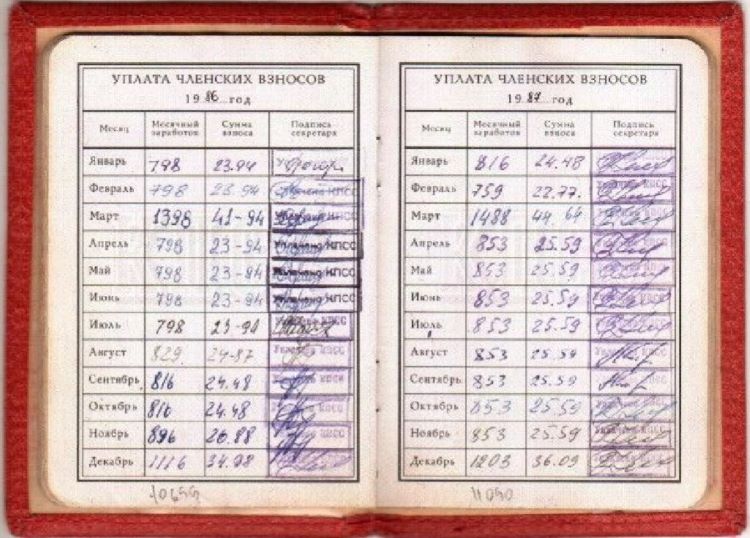 УПЛАТА ЧЛЕНСКИХ ВЗНОСОВ
19 86 год
Месяц Месячный заработок Сумма взноса Подпись секретаря
Январь 798 23.94
Февраль 798 23-94 КПСС
Март 1398 41-94 Уплачено КПСС
Апрель 798 23-94 Уплачено КПСС
Май 798 23-94 Уплачено КПСС
Июнь 798 23-94 Уплачено КПСС
Июль 798 23-94 КПСС
Август 829 24-87 Уплачено КПСС
Сентябрь 816 24.48 КПСС
Октябрь 816 24.48 КПСС
Ноябрь 896 26.88 КПСС
Декабрь 1116
10659
УПЛАТА ЧЛЕНСКИХ ВЗНОСОВ
19 87 год
Месяц Месячный заработок Сумма взноса Подпись секретаря
Январь 816 24.48
Февраль 759 22.77. КПСС
Март 1488 44.64
Апрель 853 25.59
Май 853 25.59
Июнь 853 25.59
Июль 853 25.59
Август 853 25.59 КПСС
Сентябрь 853 25.59 КПСС
Октябрь 853 25.59
Ноябрь 853 25.59 КПСС
Декабрь 1203 36.09